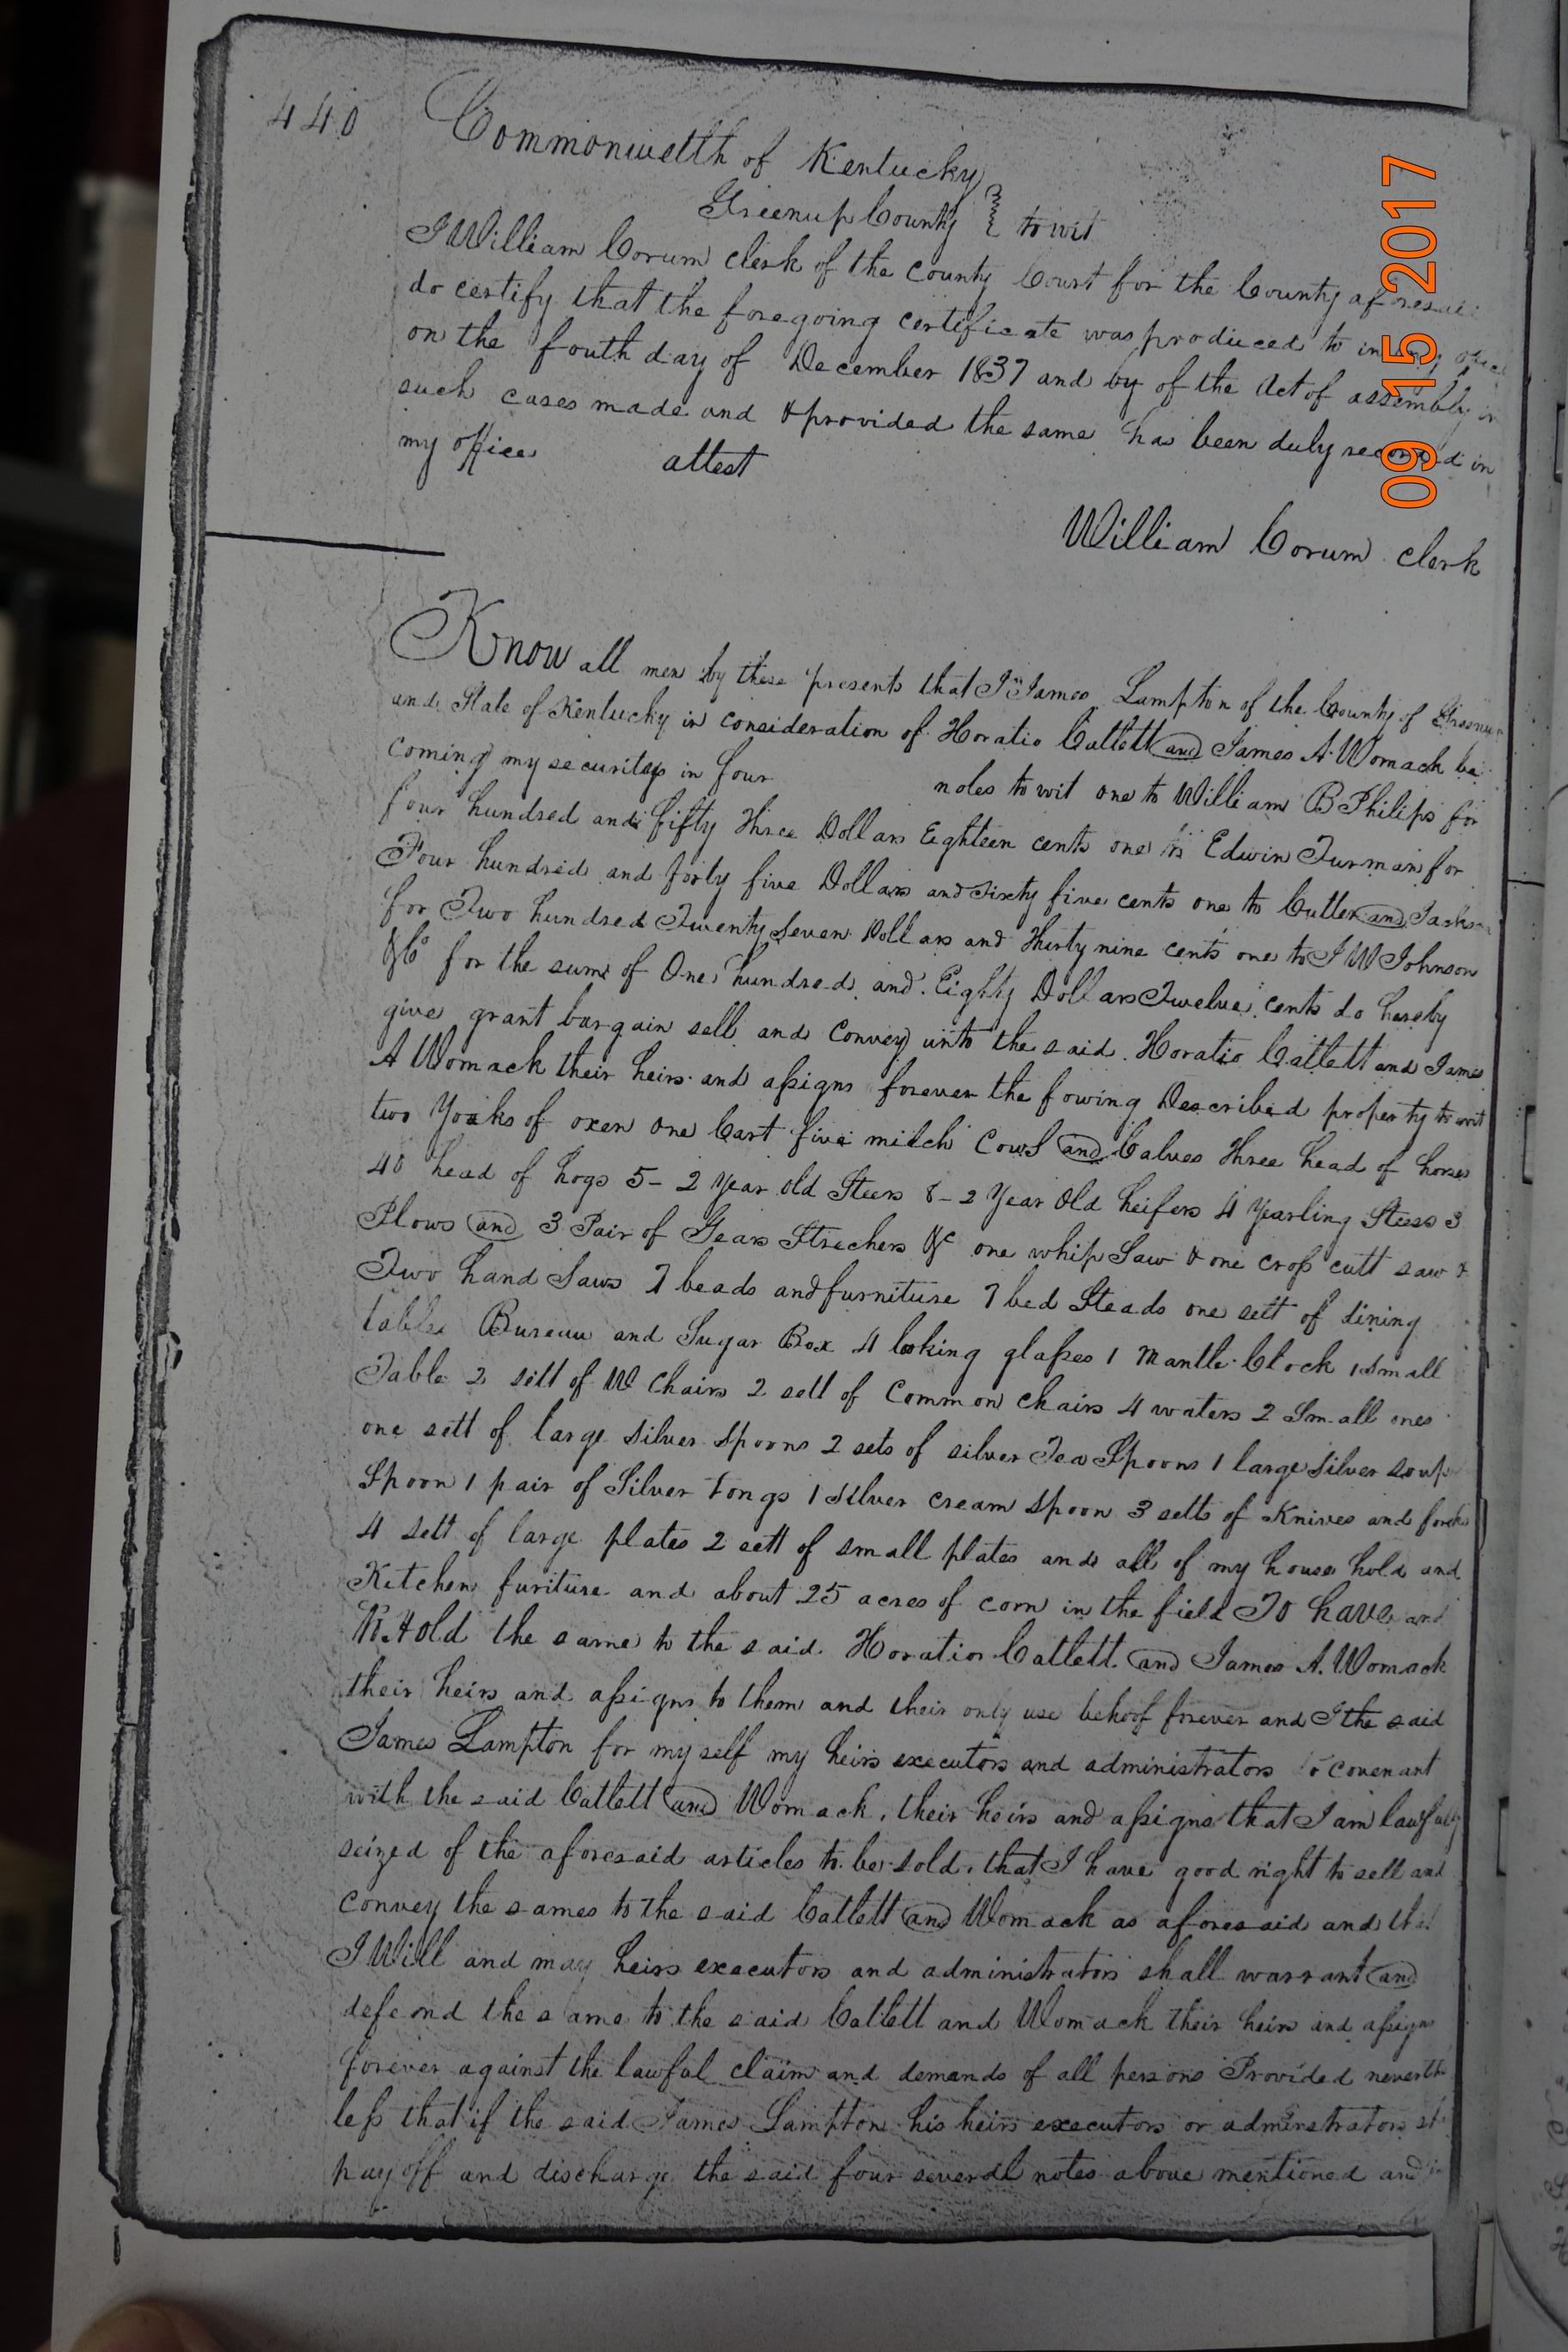 440
Commonwelth of Kentucky
Greenup County } to wit
I William Corum clerk of the county Court for the County aforesai
do certify that the foregoing certificate was produced to in
on the fouth day of December 1837 and by of the Act of assembly in
such cases made and & provided the same has been duly recorded in
my office attest
William Corum clerk
Know all men by these presents that I James Lampton of the County of Greenup
and State of Kentucky in consideration of Horatio Catlett and James A. Womack be
coming my securitys in four notes to wit one to William B Philips for
four hundred and fifty three Dollars Eighteen cents one to Edwin Turman for
Four hundred and forty five Dollars and sixty five cents one to Cutler and Jackson
for Two hundred Twenty Seven Dollars and thirty nine cents one to J W Johnson
&Co for the sum of One hundred and Eighty Dollars Twelve cents do hereby
give grant bargain sell and convey unto the said Horatio Catlett and James
A Womack their heirs and assigns forever the fowing Described property to wit
two Yoaks of oxen one Cart five milch Cows and Calves three head of horses
40 head of hogs 5 - 2 year old Steers 8 - 2 Year Old heifers 4 Yearling Steers 3
Plows and 3 Pair of Gears Strechers &c one whip Saw & one cross cutt saw &
Two hand Saws 7 beads and furniture 7 bed Steads one sett of dining
tables Bureau and Sugar Box 4 looking glasses 1 Mantle Clock 1 small
Table 2 sett of W chairs 2 sett of Common chairs 4 waters 2 Small ones
one sett of large silver spoons 2 sets of silver Tea Spoons 1 large silver soup
Spoon 1 pair of Silver tongs 1 silver cream spoon 3 setts of Knives and forks
4 sett of large plates 2 sett of small plates and all of my house hold and
Kitchen furiture and about 25 acres of corn in the field To have and
to Hold the same to the said Horatio Catlett and James A. Womack
their heirs and assigns to them and their only use behoof forever and I the said
James Lampton for my self my heirs executors and administrators covenant
with the said Catlett and Womack, their heirs and assigns that I am lawfully
seized of the aforesaid articles to be sold, that I have good right to sell and
convey the sames to the said Catlett and Womack as aforesaid and that
I Will and may heirs executors and administrators shall warrant and
defend the same to the said Catlett and Womack their heirs and assigns
forever against the lawful claim and demands of all persons Provided neverthe
less that if the said James Lampton his heirs executors or adminstrators
pay off and discharge the said four severdl notes above mentioned and
09 15 2017